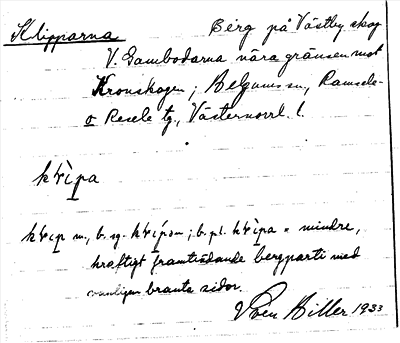 Klipparna Berg på Västby skog
V. Gambodarna nära gränsen mot
Kronskogen; Helgums sn, Ramsele-
o Resele tg., Västernorrl. l.
kłìpa
kłip m., b. sg. kłípən; b. pl. kłìpa = mindre,
kraftigt framträdande bergparti med
vanligen branta sidor.
Sven Hiller 1933